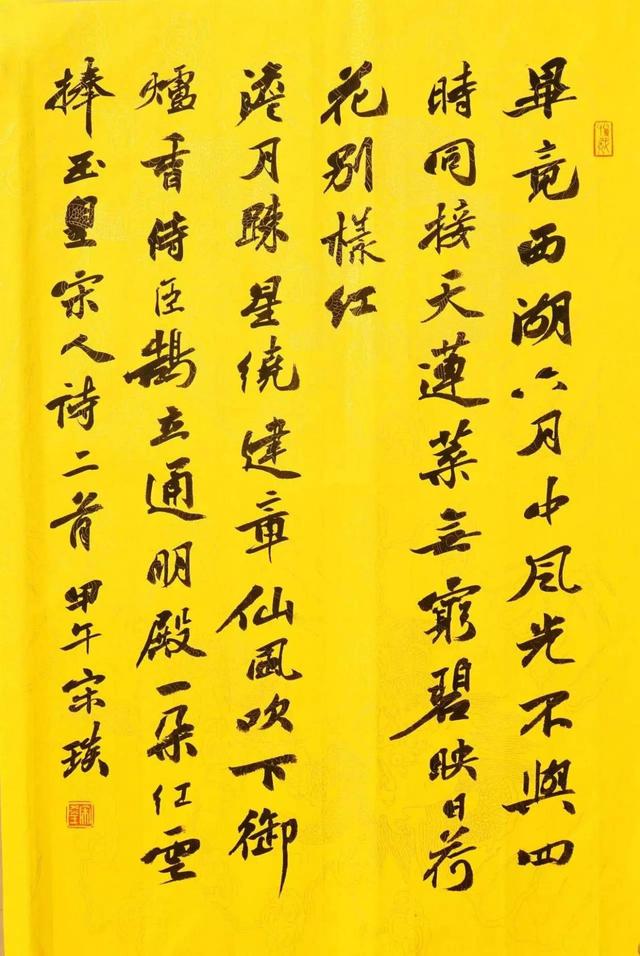 畢竟西湖六月中風光不與四
時同接天蓮葉無窮碧映日荷
花別樣紅
澹月疎星繞建章仙風吹下御
爐香侍臣鵠立通明殿一朵紅雲
捧玉皇宋人詩二首甲午宋琰